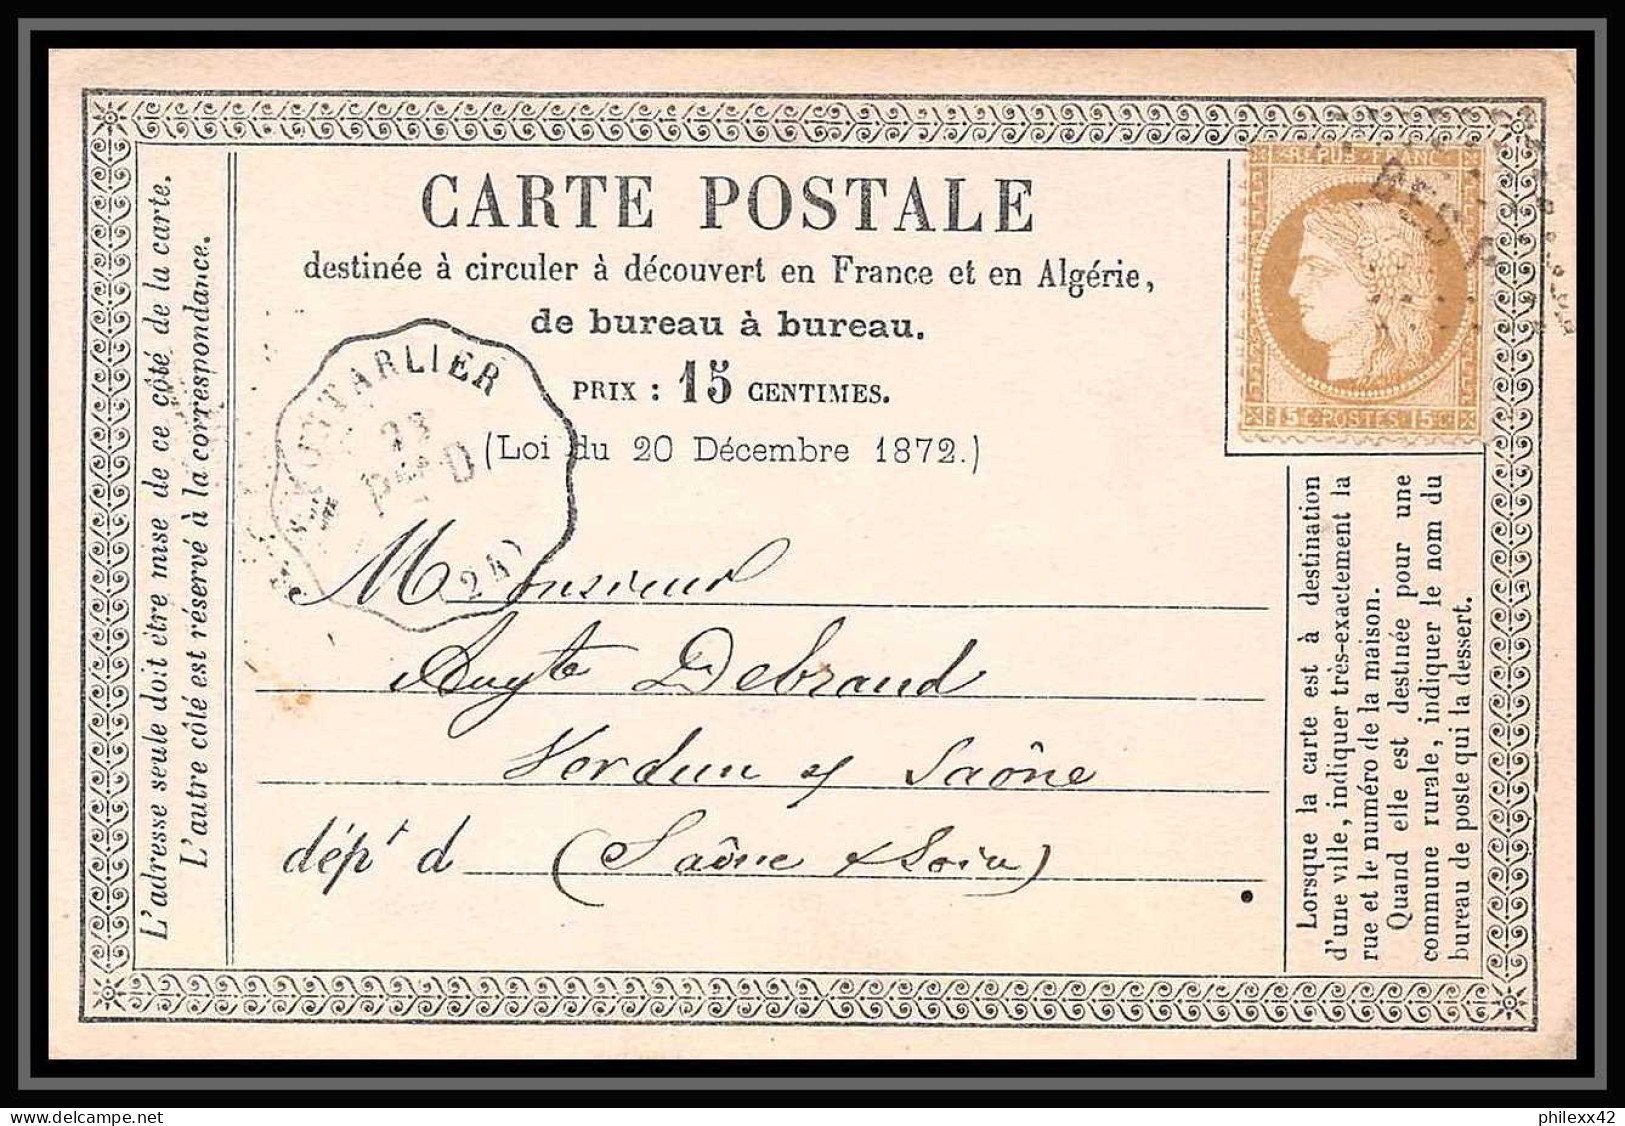 CARTE POSTALE
destinée à circuler à découvert en France et en Algérie,
de bureau à bureau.
PRIX : 15 CENTIMES.
(Loi du 20 Décembre 1872.)
REPUB · FRANC
15 C · POSTES · 15 C
PONTARLIER
23
D
24)
Monsieur
Augte Debrand
Verdun s/ Saône
dépt d (Saône & Loire)
L'adresse seule doit être mise de ce côté de la carte.
L'autre côté est réservé à la correspondance.
Lorsque la carte est à destination
d'une ville, indiquer très-exactement la
rue et le numéro de la maison.
Quand elle est destinée pour une
commune rurale, indiquer le nom du
bureau de poste qui la dessert.
delcampe.net
philexx42